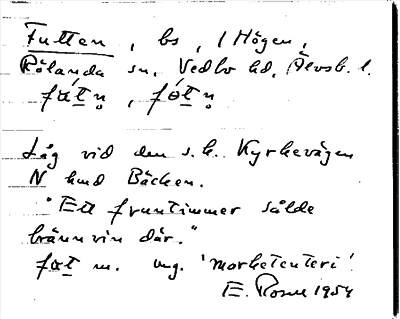 Futten, bs, i Högen,
Rölanda sn, Vedbo hd, Älvsb. l.
fɷ́tṇ, fótṇ
Låg vid den s.k. Kyrkevägen
N hmd Bäcken.
"Ett fruntimmer sålde
brännvin där."
fɷt m. ung. 'marketenteri'.
E. Rosur 1954